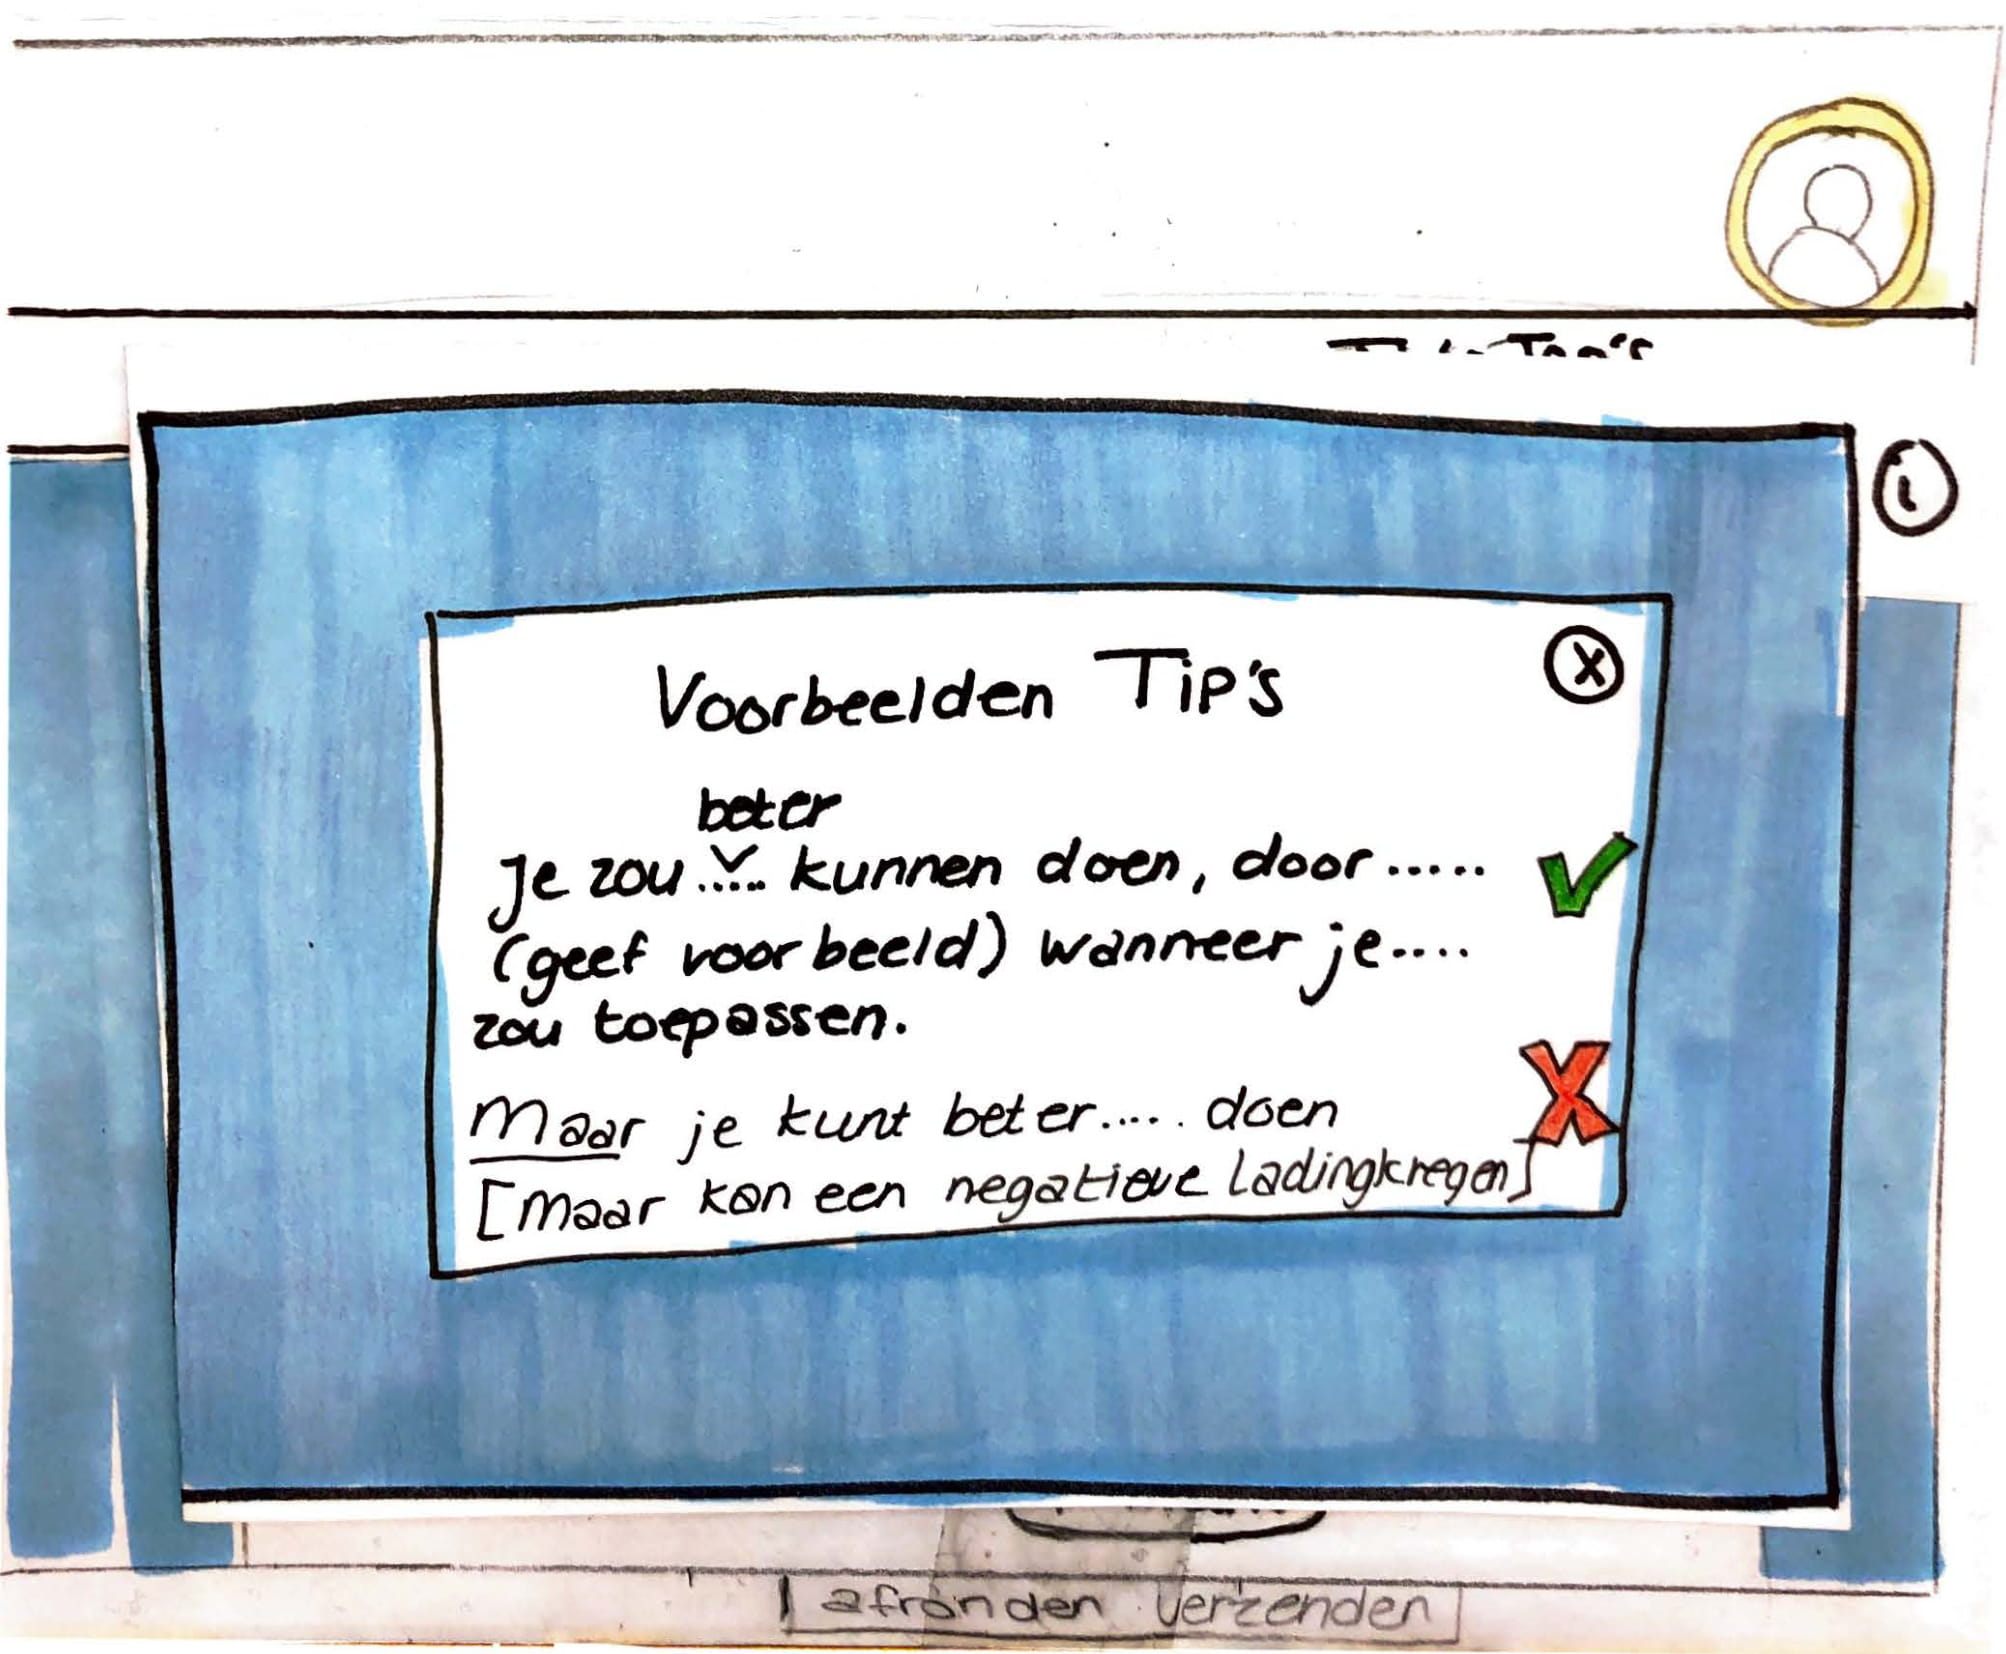 Voorbeelden Tip's
X
beter
Je zou ..... kunnen doen, door .....
(geef voorbeeld) wanneer je....
zou toepassen.
Maar je kunt beter..... doen
[maar kan een negatieve lading kregen]
i
afronden verzenden